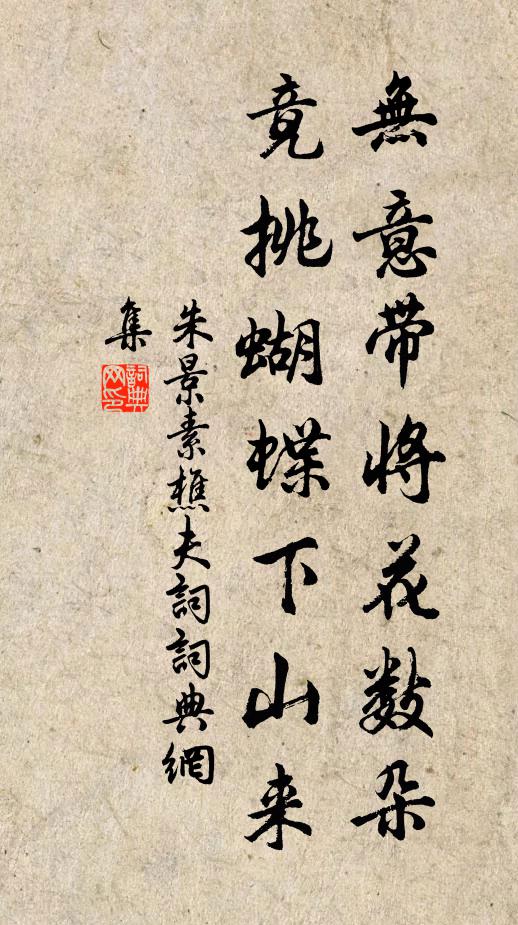 無意帶將花數朵
竟挑蝴蝶下山来
朱景素樵夫詞詞典網
集
詞典网印